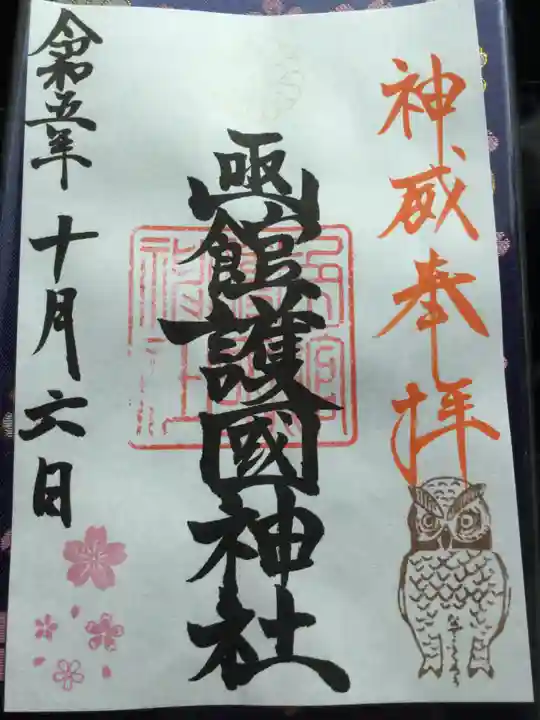 神威奉拝
函館護國神社
令和五年十月六日